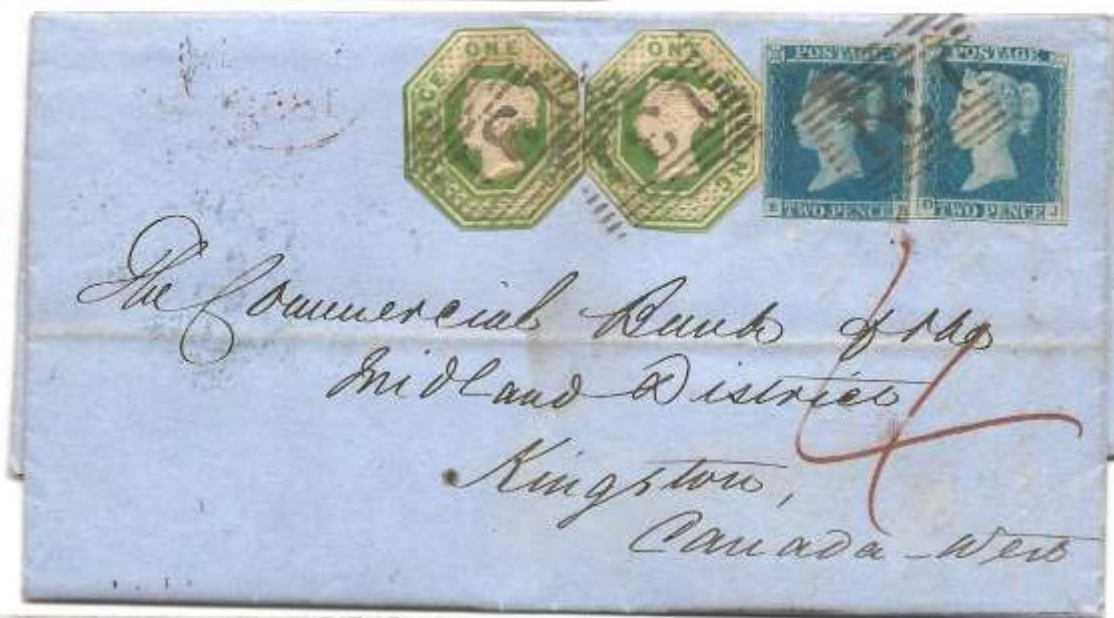 ONE ONE
POSTAGE POSTAGE
TWO PENCE TWO PENCE
O J
The Commercial Bank of the
Midland District
4
Kingston,
Canada-West